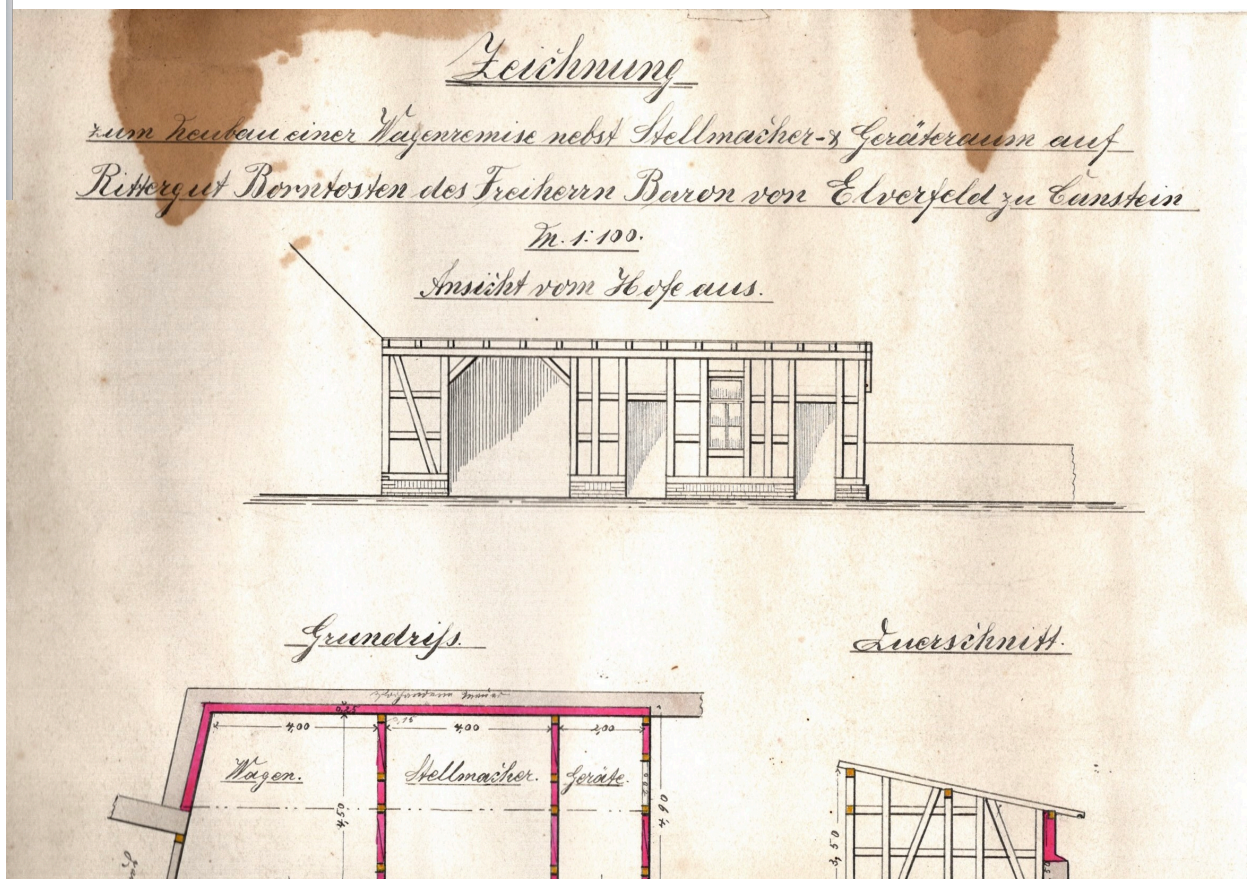 Zeichnung
zum Neubau einer Wagenremise nebst Stellmacher- & Geräteraum auf
Rittergut Borntosten des Freiherrn Baron von Elverfeld zu Canstein
M. 1:100.
Ansicht vom Hofe aus.
Grundriss.
Querschnitt.
Vorhandene Mauer
0,25
0,15
4,00
4,00
2,00
Wagen.
Stellmacher.
Geräte.
4,50
4,90
3,50